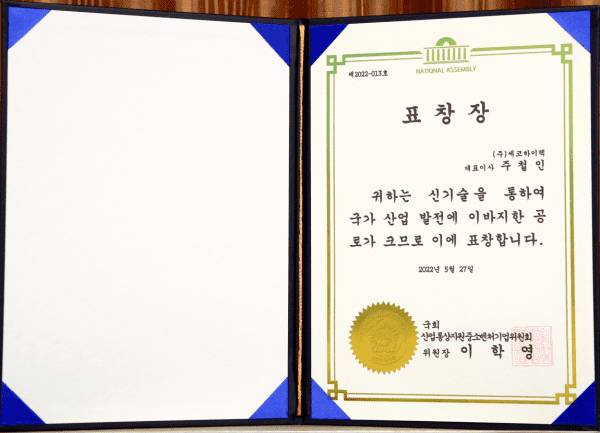 NATIONAL ASSEMBLY
제2022-013호
표 창 장
(주)세코하이텍
대표이사 주 철 인
귀하는 신기술을 통하여
국가 산업 발전에 이바지한 공
로가 크므로 이에 표창합니다.
2022년 5월 27일
국회
산업통상자원중소벤처기업위원회
위원장 이 학 영